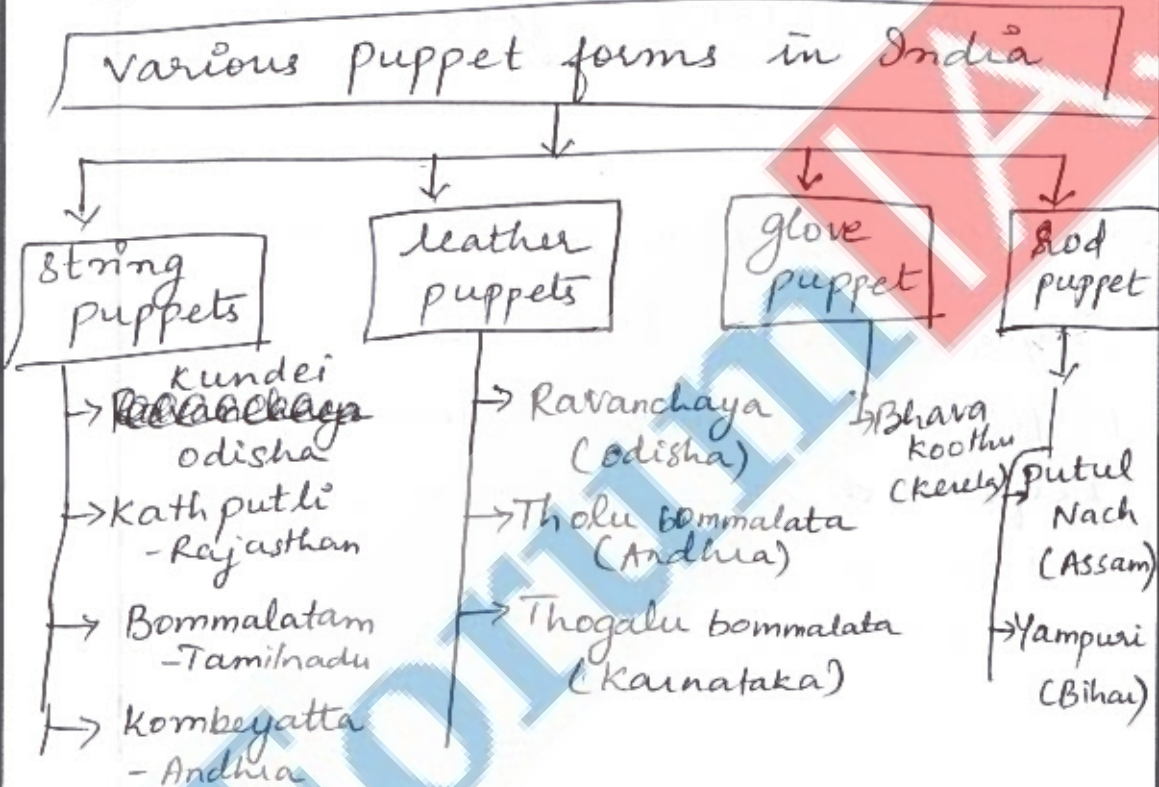 Various puppet forms in India
string
puppets
Kundei
odisha
Kathputli
-Rajasthan
Bommalatam
-Tamilnadu
Kombeyatta
- Andhra
leather
puppets
Ravanchaya
(odisha)
Tholu bommalata
(Andhra)
Thogalu bommalata
(Karnataka)
glove
puppet
Bhava
koothu
(Kerela)
Rod
puppet
putul
Nach
(Assam)
Yampuri
(Bihar)
IA
forum